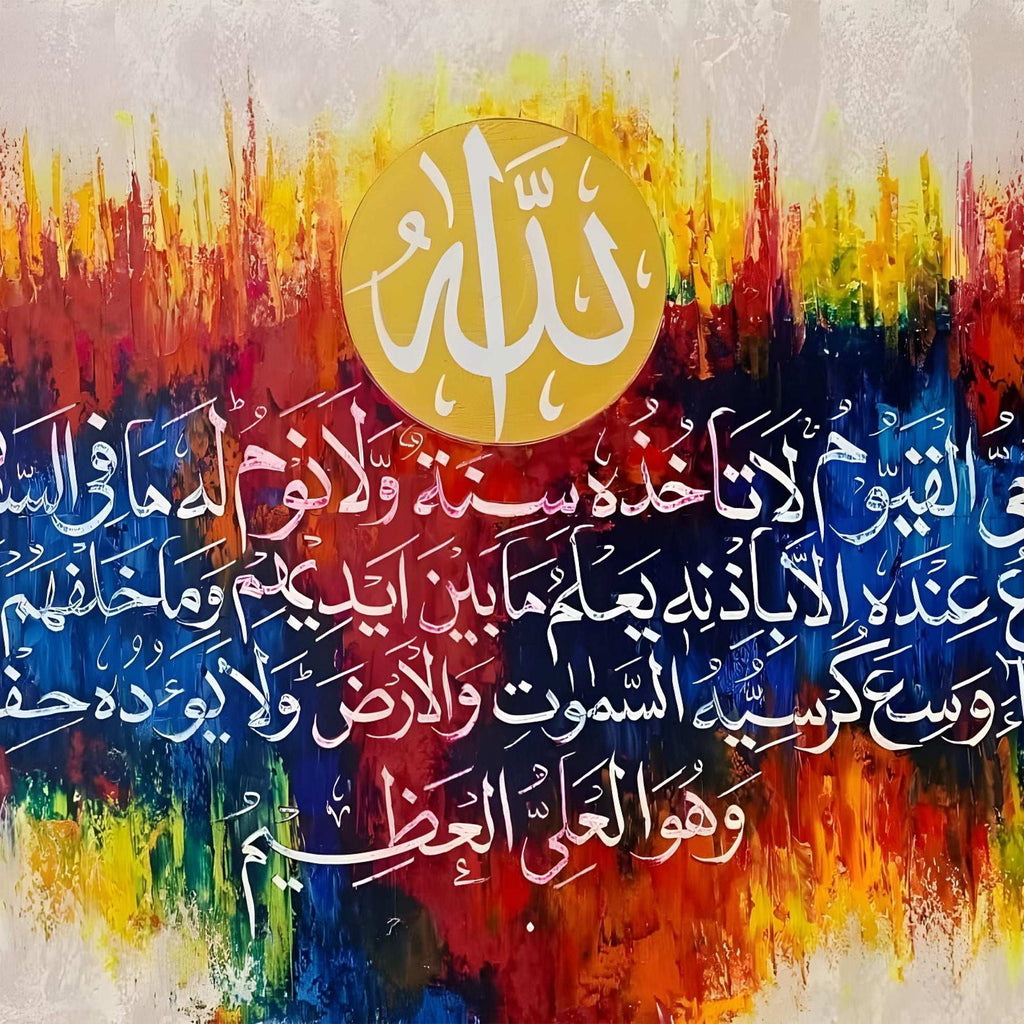 اللّٰهُ
القَيُّومُ لَا تَاخُذُهُ سِنَةٌ وَّلَا نَوْمٌ لَهُ مَا فِى
عِنْدَهُ الَّا بِاذْنِهِ يَعْلَمُ مَا بَيْنَ ايْدِيهِمْ وَمَا خَلْفَهُمْ
وَسِعَ كُرْسِيُّهُ السَّمٰوٰتِ وَالْارْضَ وَلَا يَوءدُهُ
وَهُوَ الْعَلِىُّ الْعَظِيمُ